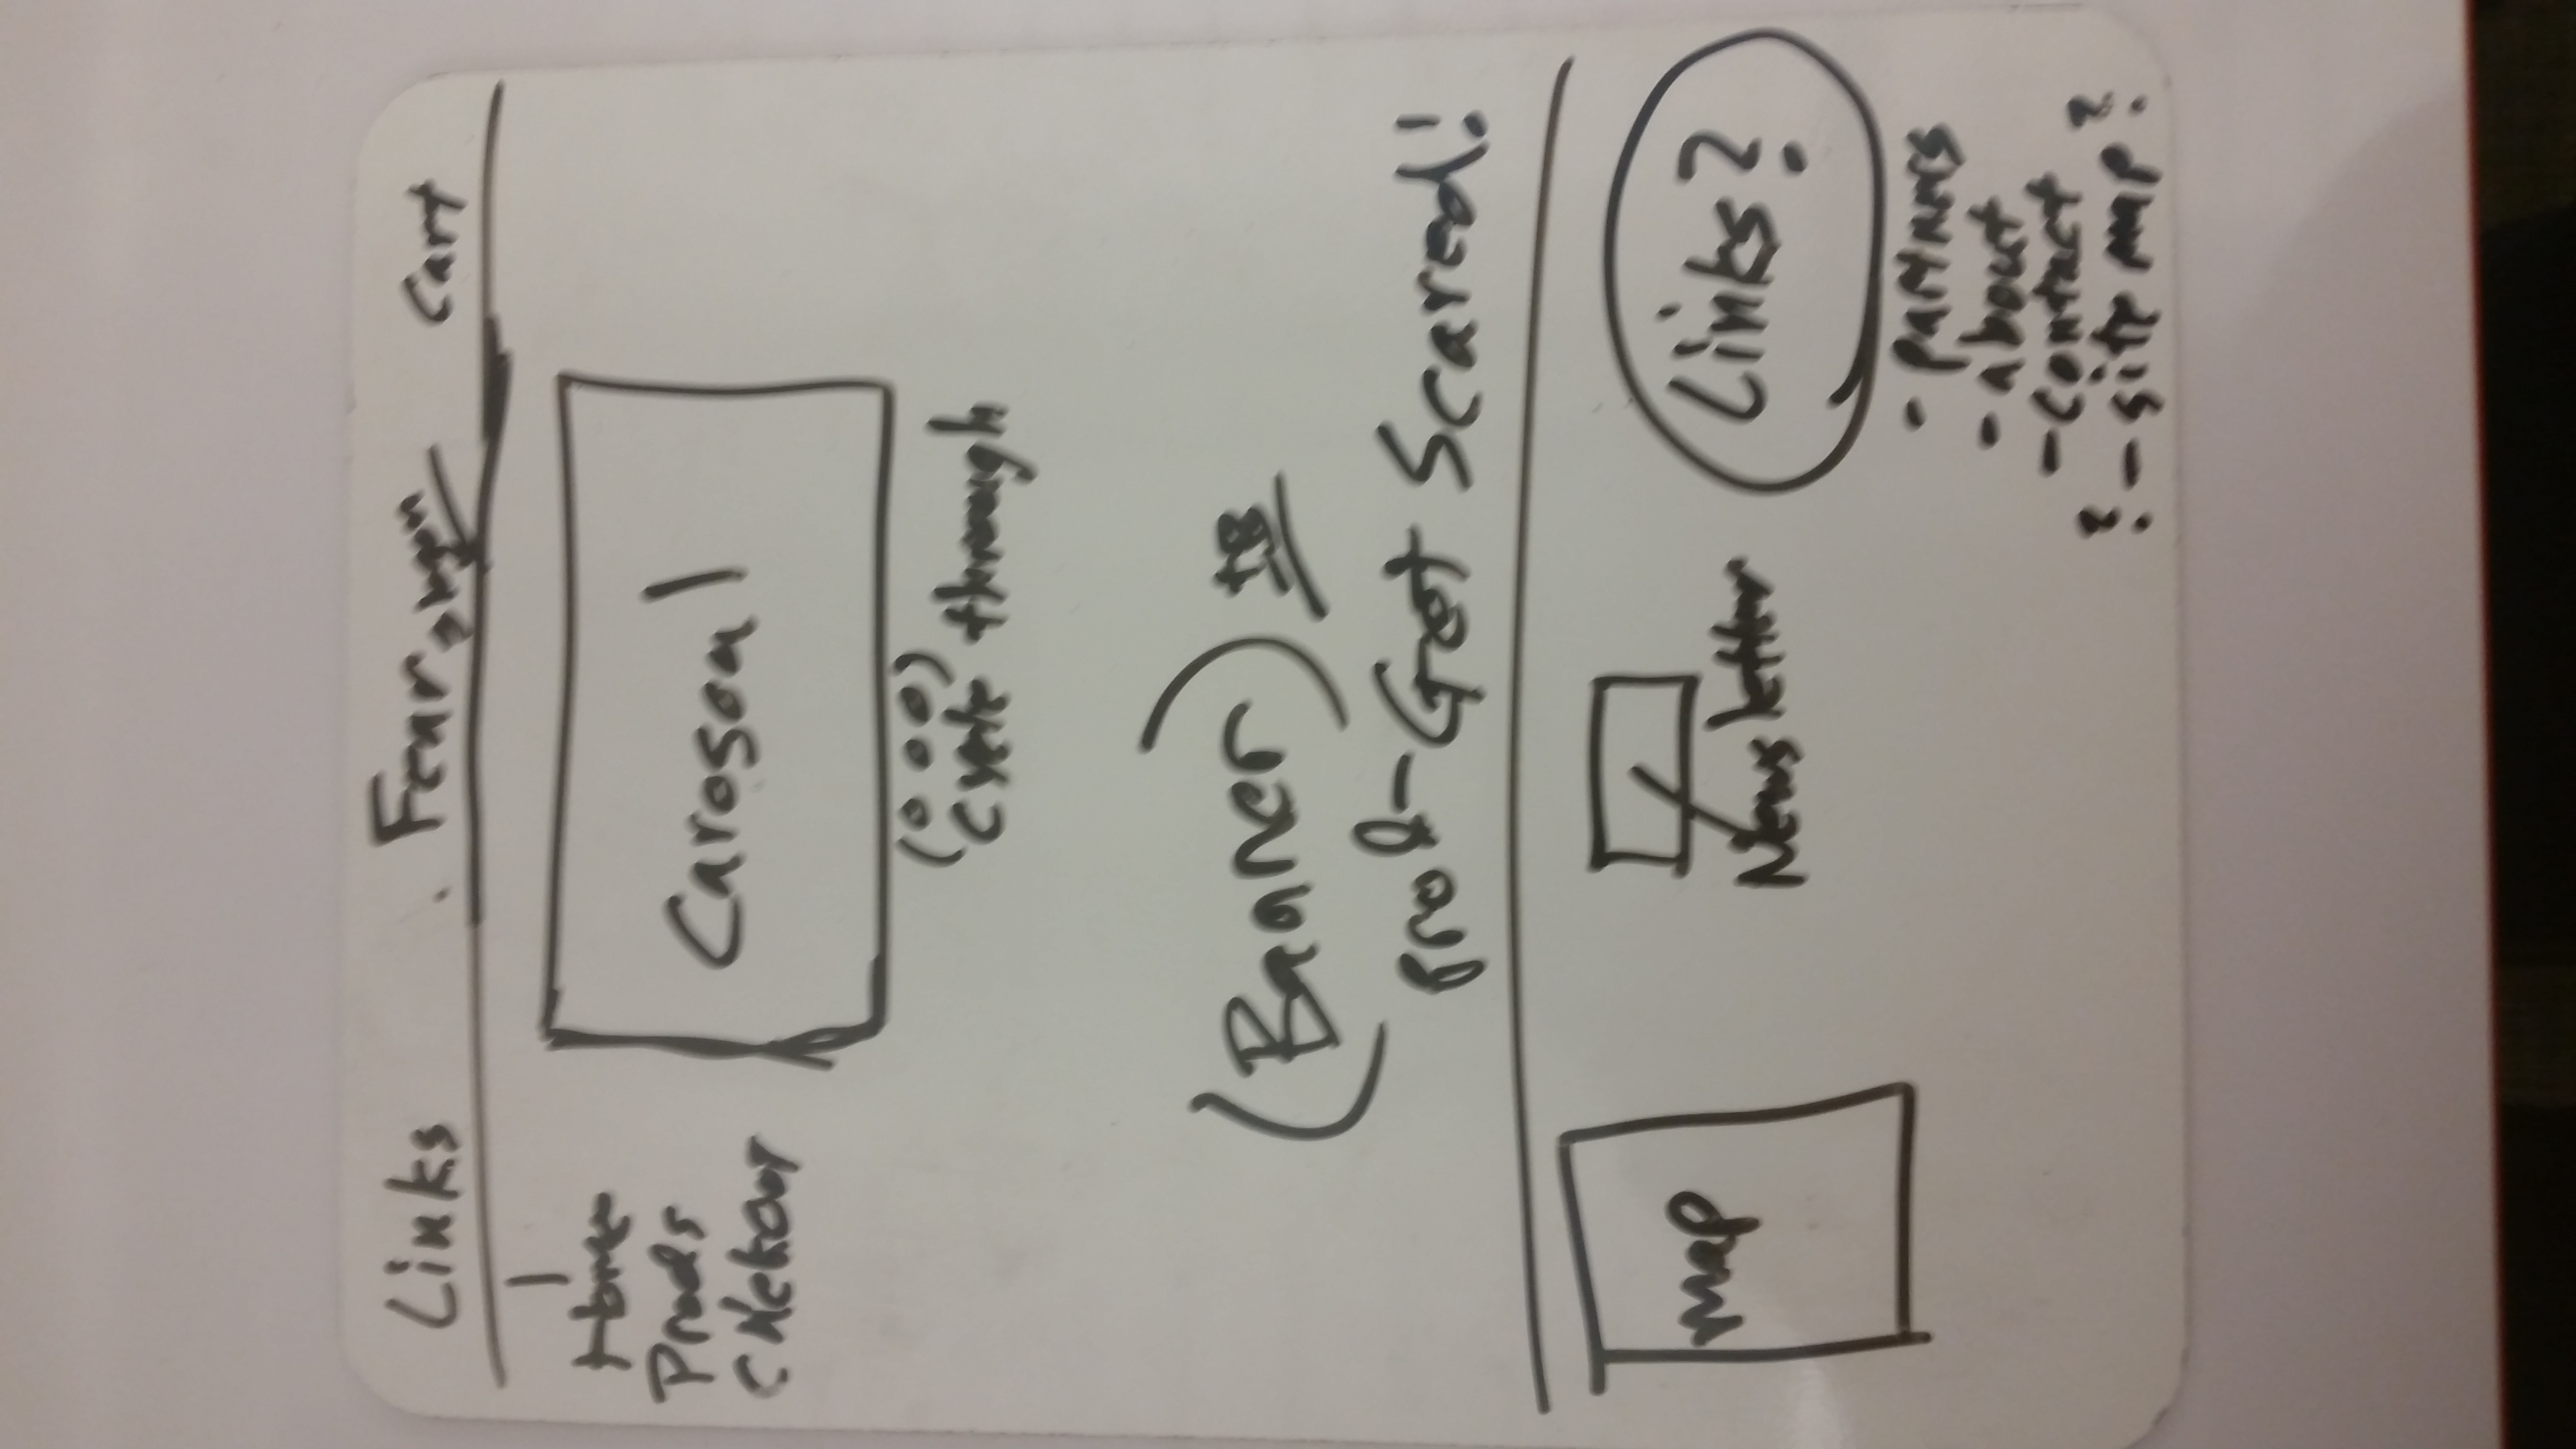 Links Fear Cart
Home
Prods
CHekout
Caroseal
Cycle through
(Banner) to
prod - Get Scared!
map
Newsletter
Links?
- partners
- about
- contact
? - site map ?